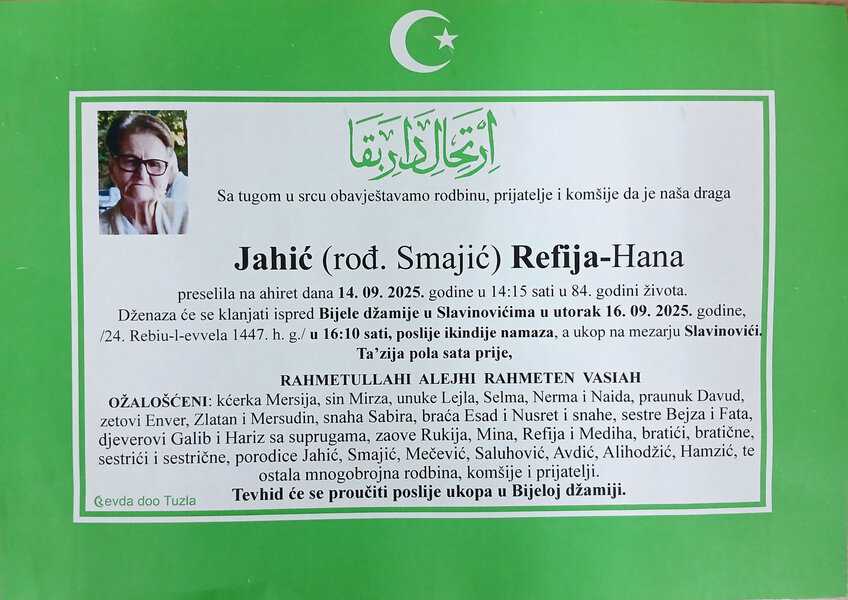 اِرْتِحَالِ دَارِ بَقَا
Sa tugom u srcu obavještavamo rodbinu, prijatelje i komšije da je naša draga
Jahić (rođ. Smajić) Refija-Hana
preselila na ahiret dana 14. 09. 2025. godine u 14:15 sati u 84. godini života.
Dženaza će se klanjati ispred Bijele džamije u Slavinovićima u utorak 16. 09. 2025. godine,
/24. Rebiu-l-evvela 1447. h. g./ u 16:10 sati, poslije ikindije namaza, a ukop na mezarju Slavinovići.
Ta’zija pola sata prije,
RAHMETULLAHI ALEJHI RAHMETEN VASIAH
OŽALOŠĆENI: kćerka Mersija, sin Mirza, unuke Lejla, Selma, Nerma i Naida, praunuk Davud,
zetovi Enver, Zlatan i Mersudin, snaha Sabira, braća Esad i Nusret i snahe, sestre Bejza i Fata,
djeverovi Galib i Hariz sa suprugama, zaove Rukija, Mina, Refija i Mediha, bratići, bratične,
sestrići i sestrične, porodice Jahić, Smajić, Mečević, Saluhović, Avdić, Alihodžić, Hamzić, te
ostala mnogobrojna rodbina, komšije i prijatelji.
Tevhid će se proučiti poslije ukopa u Bijeloj džamiji.
Ževda doo Tuzla